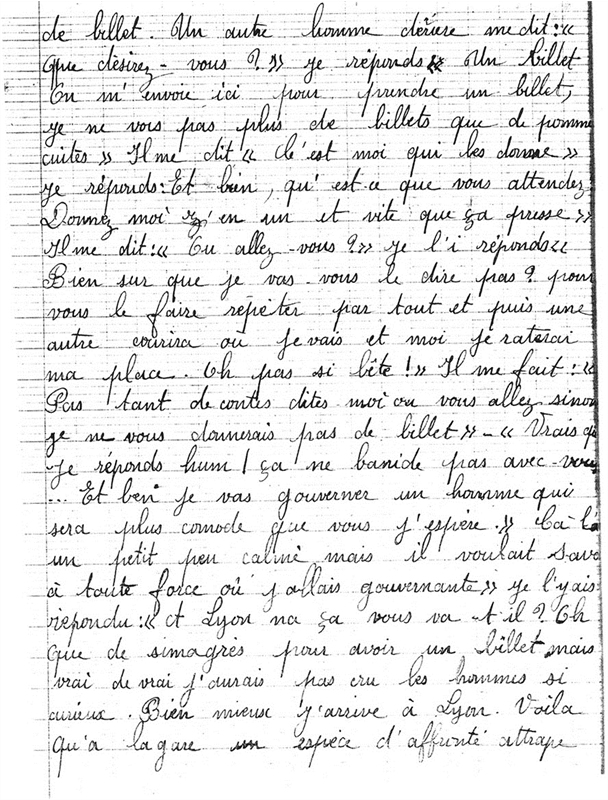 de billet. Un autre homme dérière me dit : «
que désirez-vous ? » je réponds « Un billet
On m'envoie ici pour prendre un billet,
je ne vois pas plus de billets que de pomme
cuites » Il me dit « C'est moi qui les donne »
je réponds : Et bien, qu'est-ce que vous attendez
Donnez moi z'en un et vite que ça presse »
Il me dit : « Ou allez-vous ? » je l'i réponds «
Bien sur que je vas vous le dire pas ? pour
vous le faire répèter par tout et puis une
autre courira où je vais et moi je raterai
ma place. Oh pas si bête ! » Il me fait : «
Pas tant de contes dites moi ou vous allez sinon
je ne vous donnerais pas de billet » - « Vrais
Je réponds hum ! ça ne banide pas avec vous
... Et ben je vas gouverner un homme qui
sera plus comode que vous j'espère. » Ca l'a
un petit peu calmé mais il voulait savo
à toute force où j'allais gouvernante » je l'y ais
répondu : « A Lyon na ça vous va-t-il ? Oh
que de simagrés pour avoir un billet mais
vrai de vrai j'aurais pas cru les hommes si
curieux. Bien mieux j'arrive à Lyon. Voila
qu'a la gare un espéce d'affronté attrape